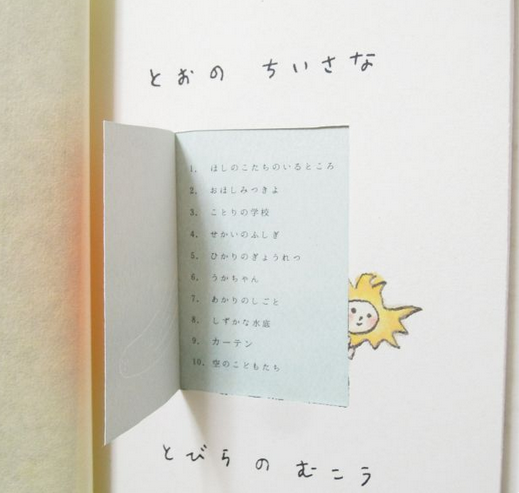 とおの ちいさな
1. ほしのこたちのいるところ
2. おほしみつきよ
3. ことりの学校
4. せかいのふしぎ
5. ひかりのぎょうれつ
6. うかちゃん
7. あかりのしごと
8. しずかな水底
9. カーテン
10. 空のこどもたち
とびらの むこう